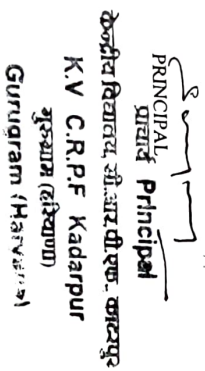 PRINCIPAL
प्राचार्य Principal
केन्द्रीय विद्यालय, सी.आर.पी.एफ. कादरपुर
K.V C.R.P.F Kadarpur
गुरुग्राम (हरियाणा)
Gurugram (Haryana)